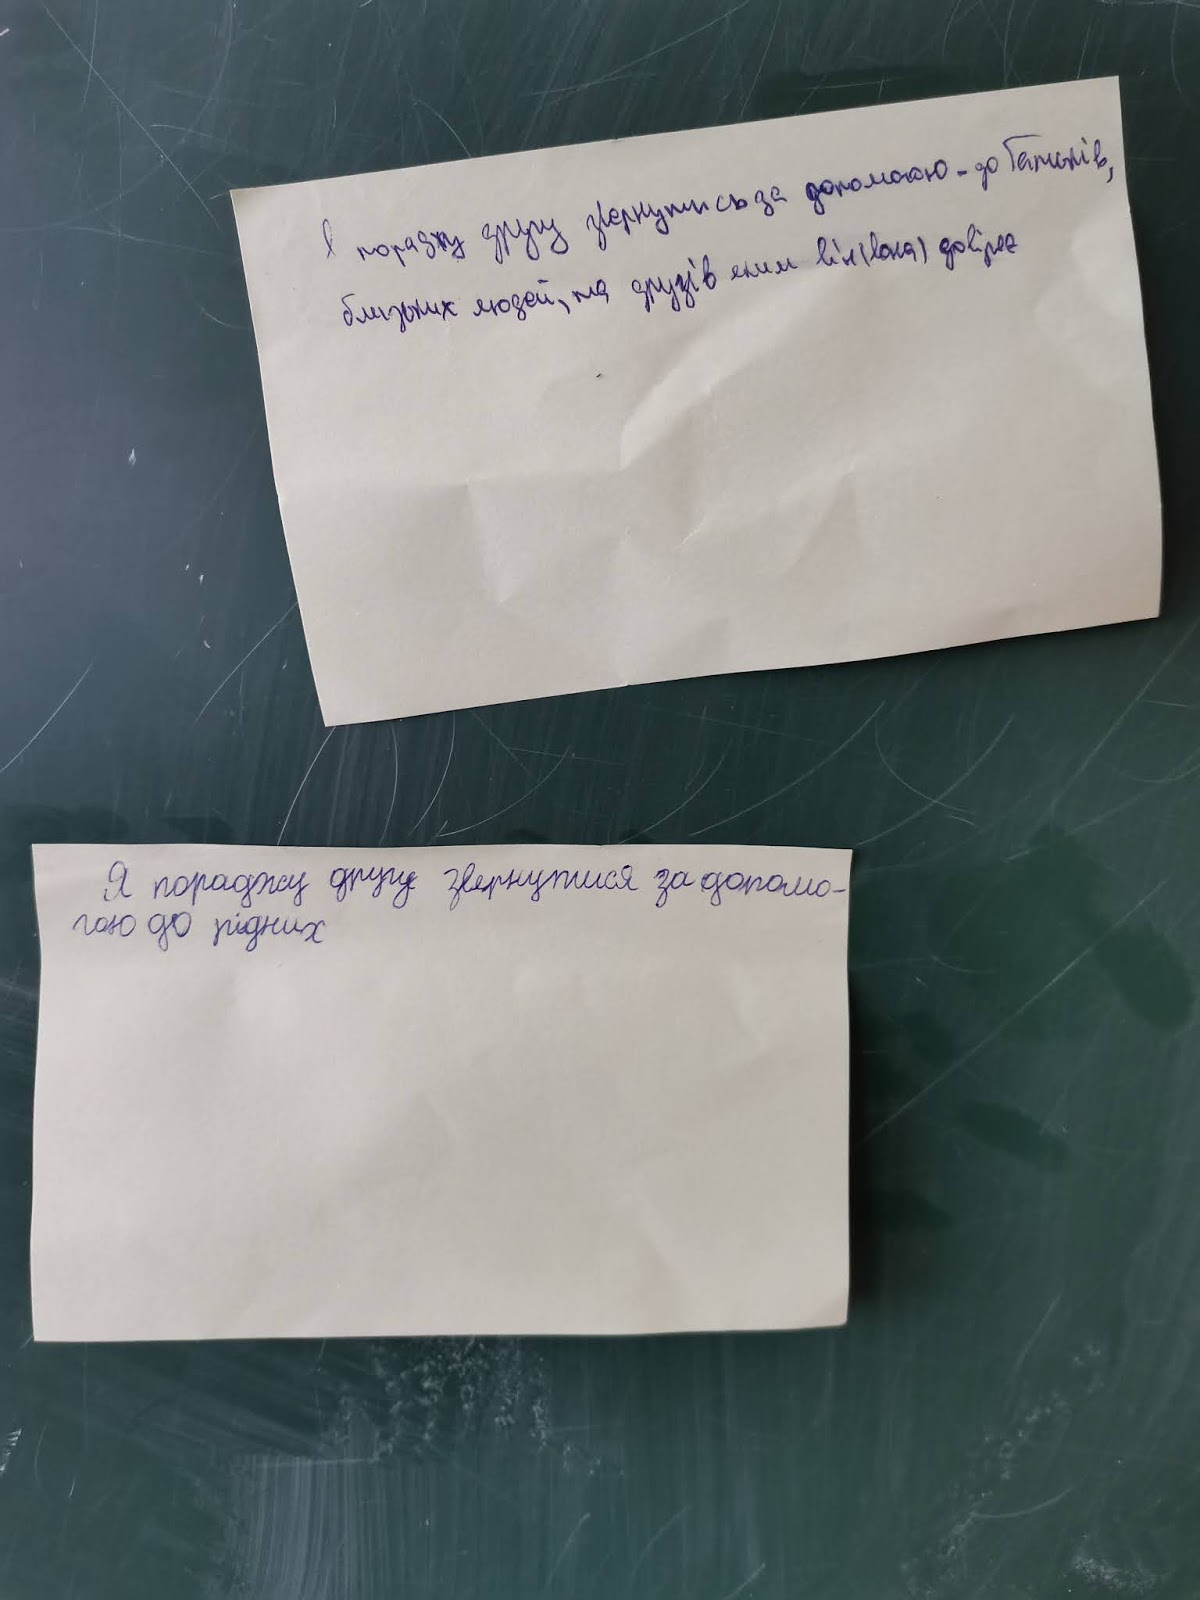 Я пораджу другу звернутись за допомогою - до батьків,
близьких людей, та друзів яким він(вона) довіряє
Я пораджу другу звернутися за допомо-
гою до рідних